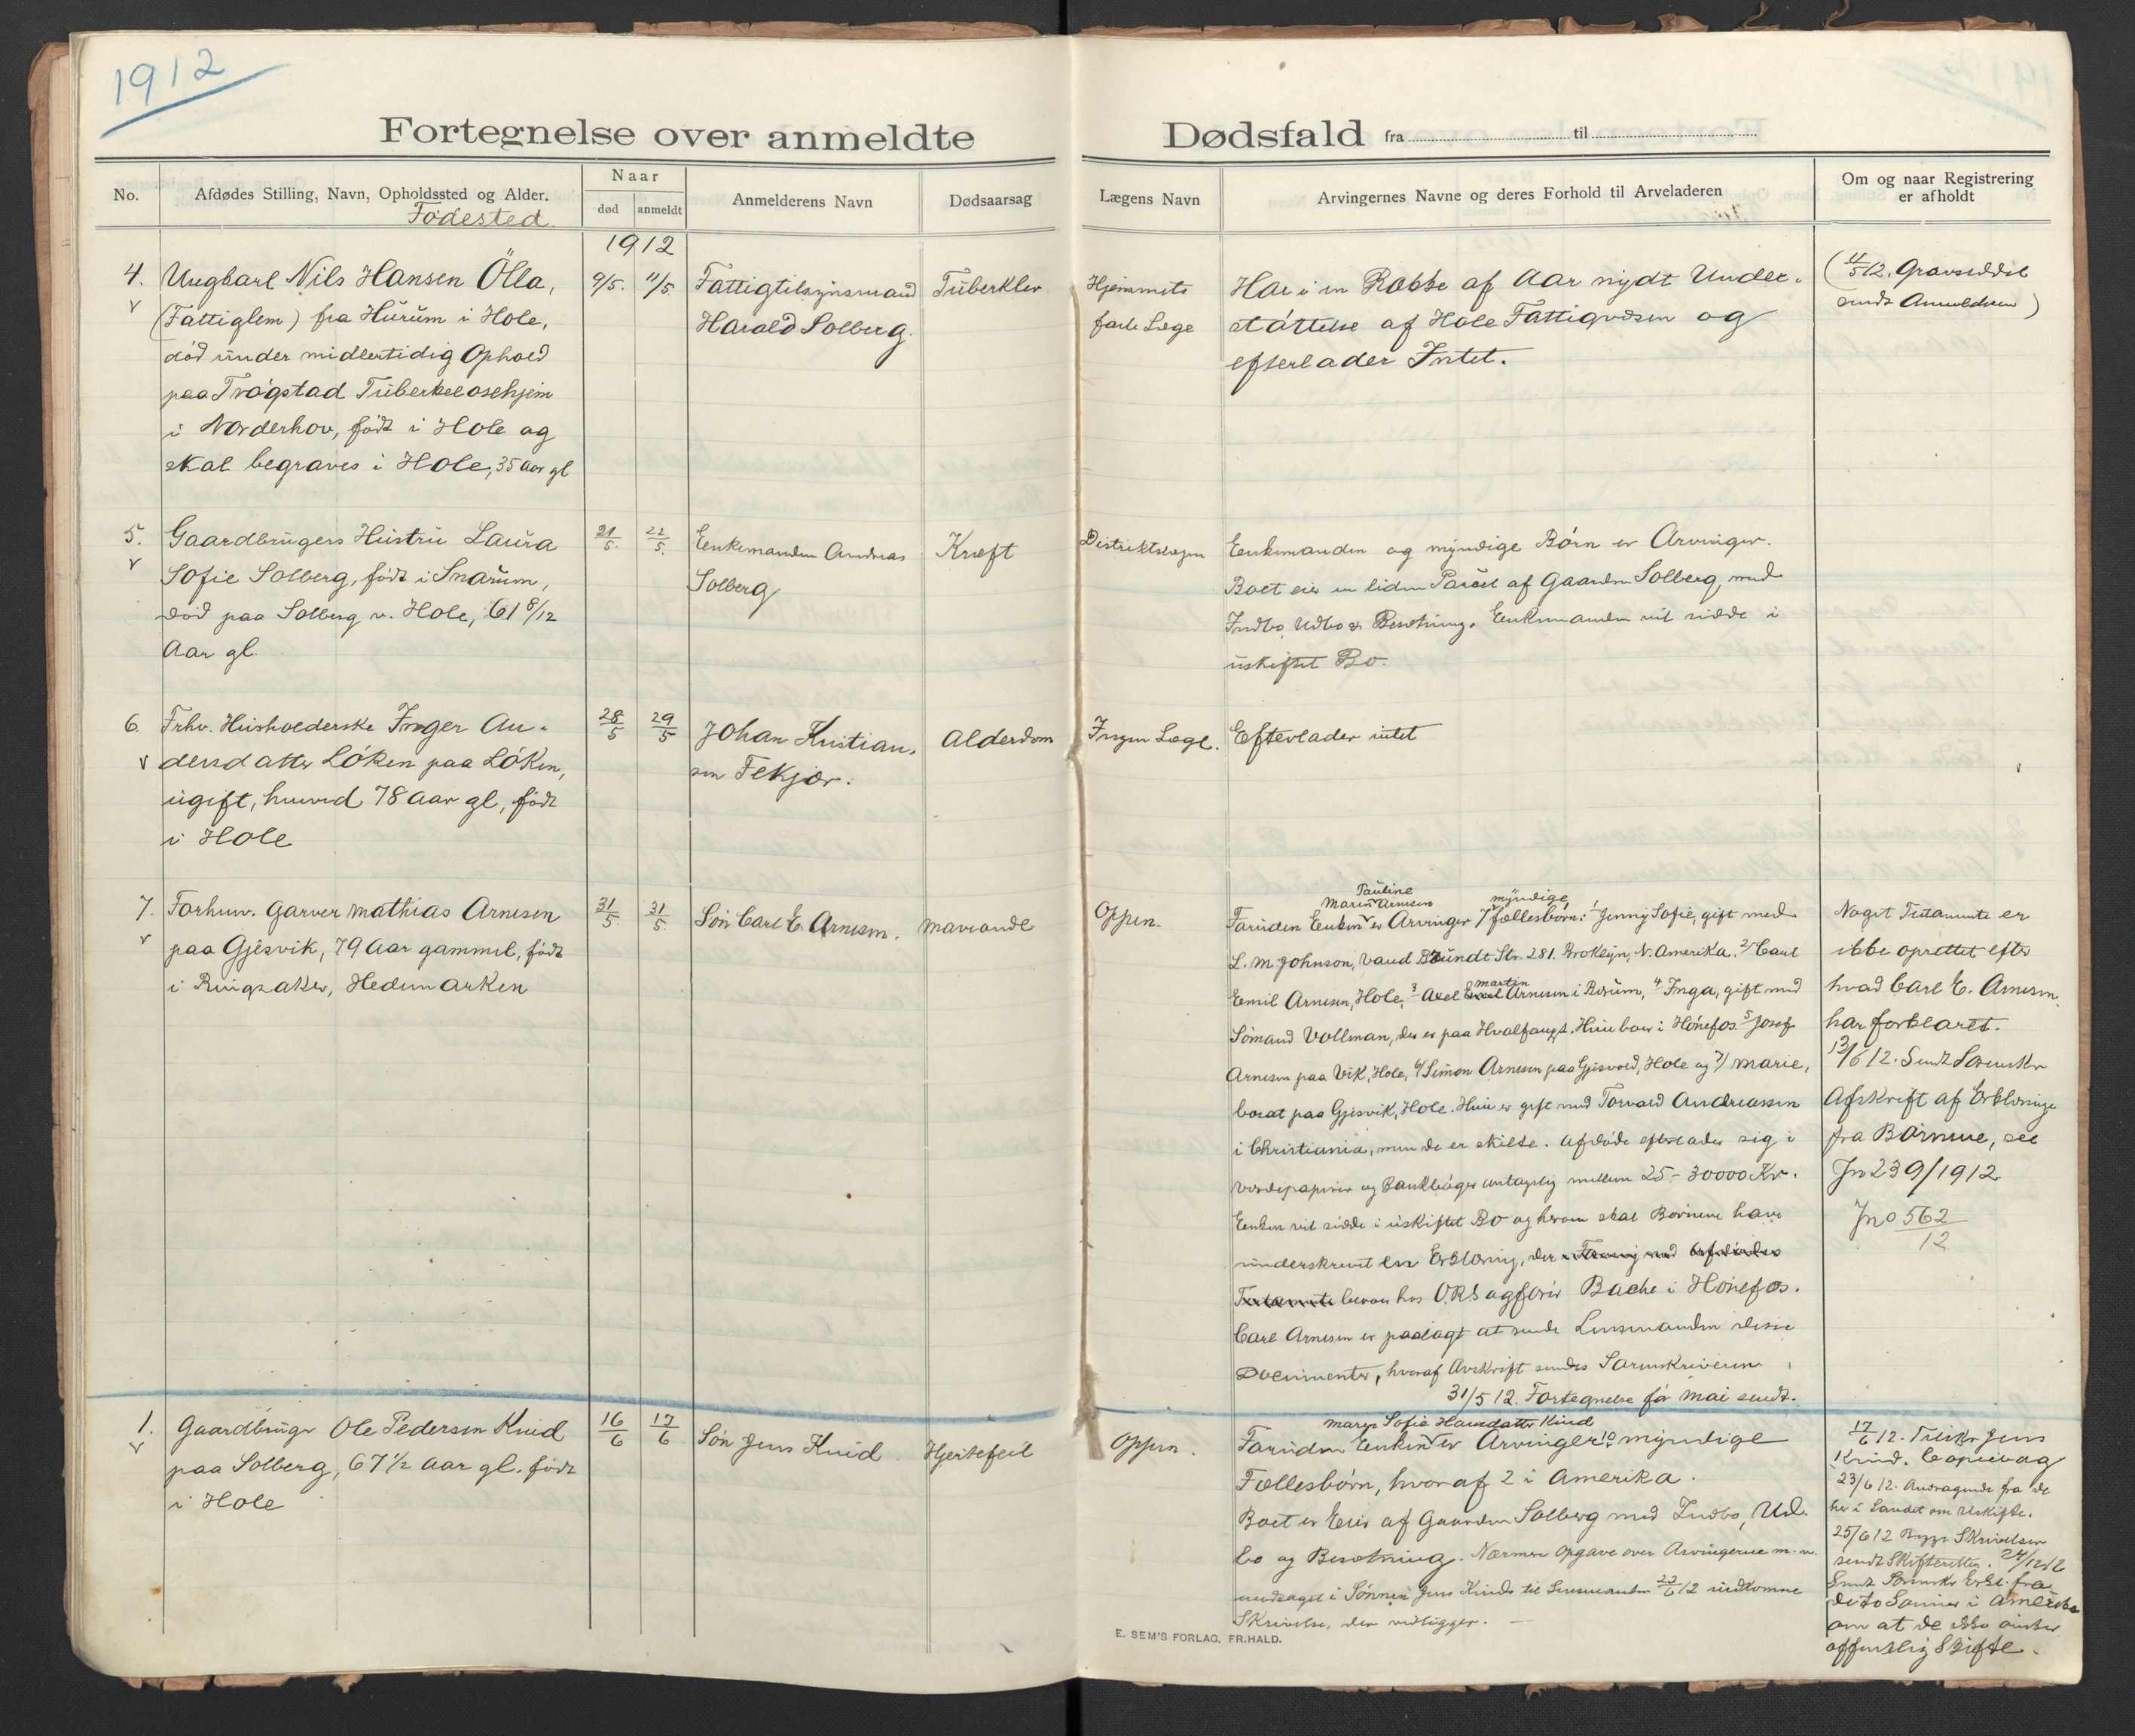 1912
Fortegnelse over anmeldte Dødsfald fra til
No.
Afdødes Stilling, Navn, Opholdssted og Alder.
Fødested
Naar
død
anmeldt
Anmelderens Navn
Dødsaarsag
Lægens Navn
Arvingernes Navne og deres Forhold til Arveladeren
Om og naar Registrering
er afholdt
1912
4.
Ungkarl Nils Hansen Ölla,
(Fattiglem) fra Hurum i Hole,
död under midlertidig Ophold
paa Trögstad Tuberkelosehjem
i Norderhov, födt i Hole og
skal begraves i Hole, 35 Aar gl
9/5.
11/5.
Fattigtilsynsmand
Harald Solberg.
Tuberkler
Hjemmets
faste Læge
Har i en Række af Aar nydt Under-
støttelse af Hole Fattigvæsen og
efterlader Intet.
(11/5 12. Gravseddel
sendt Anmelderen)
5.
Gaardbrugers Hustru Laura
Sofie Solberg, födt i Snarum,
död paa Solberg v. Hole, 61 8/12
Aar gl
21/5.
22/5.
Enkemanden Andreas
Solberg
Kræft
Distriktslægen
Enkemanden og myndige Börn er Arvinger.
Boet eier en liden Parcel af Gaarden Solberg, med
Indbo, Udbo & Besetning. Enkemanden vil sidde i
uskiftet Bo.
6.
Frhv. Husholderske Inger An-
dersdatter Löken paa Löken,
ugift, henved 78 Aar gl, födt
i Hole
28/5
29/5
Johan Kristian-
sen Fekjær.
Alderdom
Ingen Læge.
Efterlader intet
7.
Forhenv. Garver Mathias Arnesen
paa Gjesvik, 79 Aar gammel, födt
i Ringsaker, Hedemarken
31/5
31/5.
Sön Carl E. Arnesen.
Marasme
Oppen.
Pauline
Maren Arnesen myndige
Foruden Enken er Arvinger 7 fællesbörn: 1/ Jenny Sofie, gift med
L. M. Johnson, Str. 281. Broklyn, N. Amerika. 2/ Carl
Martin
Emil Arnesen, Hole, 3 Axel Emil Arnesen i Bærum, 4 Inga, gift med
Sömand Vollman, der er paa Hvalfangst. Hun bor i Hönefos. 5 Josef
Arnesen paa Vik, Hole, 6/ Simon Arnesen paa Gjesvold, Hole og 7/ Marie,
bosat paa Gjesvik, Hole. Hun er gift med Torvald Andreassen
i Christiania, men de er skilte. Afdöde efterlader sig i
Verdipapirer og Bankböger antagelig mellem 25 - 30000 Kr.
Enken vil sidde i uskiftet Bo og herom skal Börnene have
underskrevet en Erklæring, der med Afdödes
Testamente beror hos O.R.Sagförer Bache i Hönefos.
Carl Arnesen er paalagt at sende Lensmanden disse
Documenter, hvoraf Avskrift sendes Sorenskriveren
31/5 12. Fortegnelse for Mai sendt.
Noget Testamente er
ikke oprettet efter
hvad Carl E. Arnesen
har forklaret.
13/6 12. Sendt Sorenskr
Afskrift af Erklæringe
fra Börnene, see
Jn 239/1912
Jno 562/12
1.
Gaardbruger Ole Pedersen Knud
paa Solberg, 67 1/2 Aar gl. födt
i Hole
16/6
17/6
Sön Jens Knud
Hjertefeil
Oppen.
Maren Sofie Hansdatter Knud
Foruden Enken er Arvinger 10 myndige
Fællesbörn, hvoraf 2 i Amerika.
Boet er Eier af Gaarden Solberg med Indbo, Ud-
bo og Besetning. Nærmere Opgave over Arvingerne m.v.
medtaget i Sönnen Jens Knuds til Lensmanden 23/6 12 indkomne
Skrivelse, der vedlægger.
17/6 12. Tilskr Jens
Knud. Copiebog
23/6 12. Andragende fra de
her i Landet om Uskifte.
25/6 12 Skrivelsen
sendt Skifteretten. 24/12 12
Sendt Sorenskr Erkl. fra
de to Sönner i Amerika
om at de ikke önsker
offentlig Skifte.
E. SEM'S FORLAG, FR.HALD.